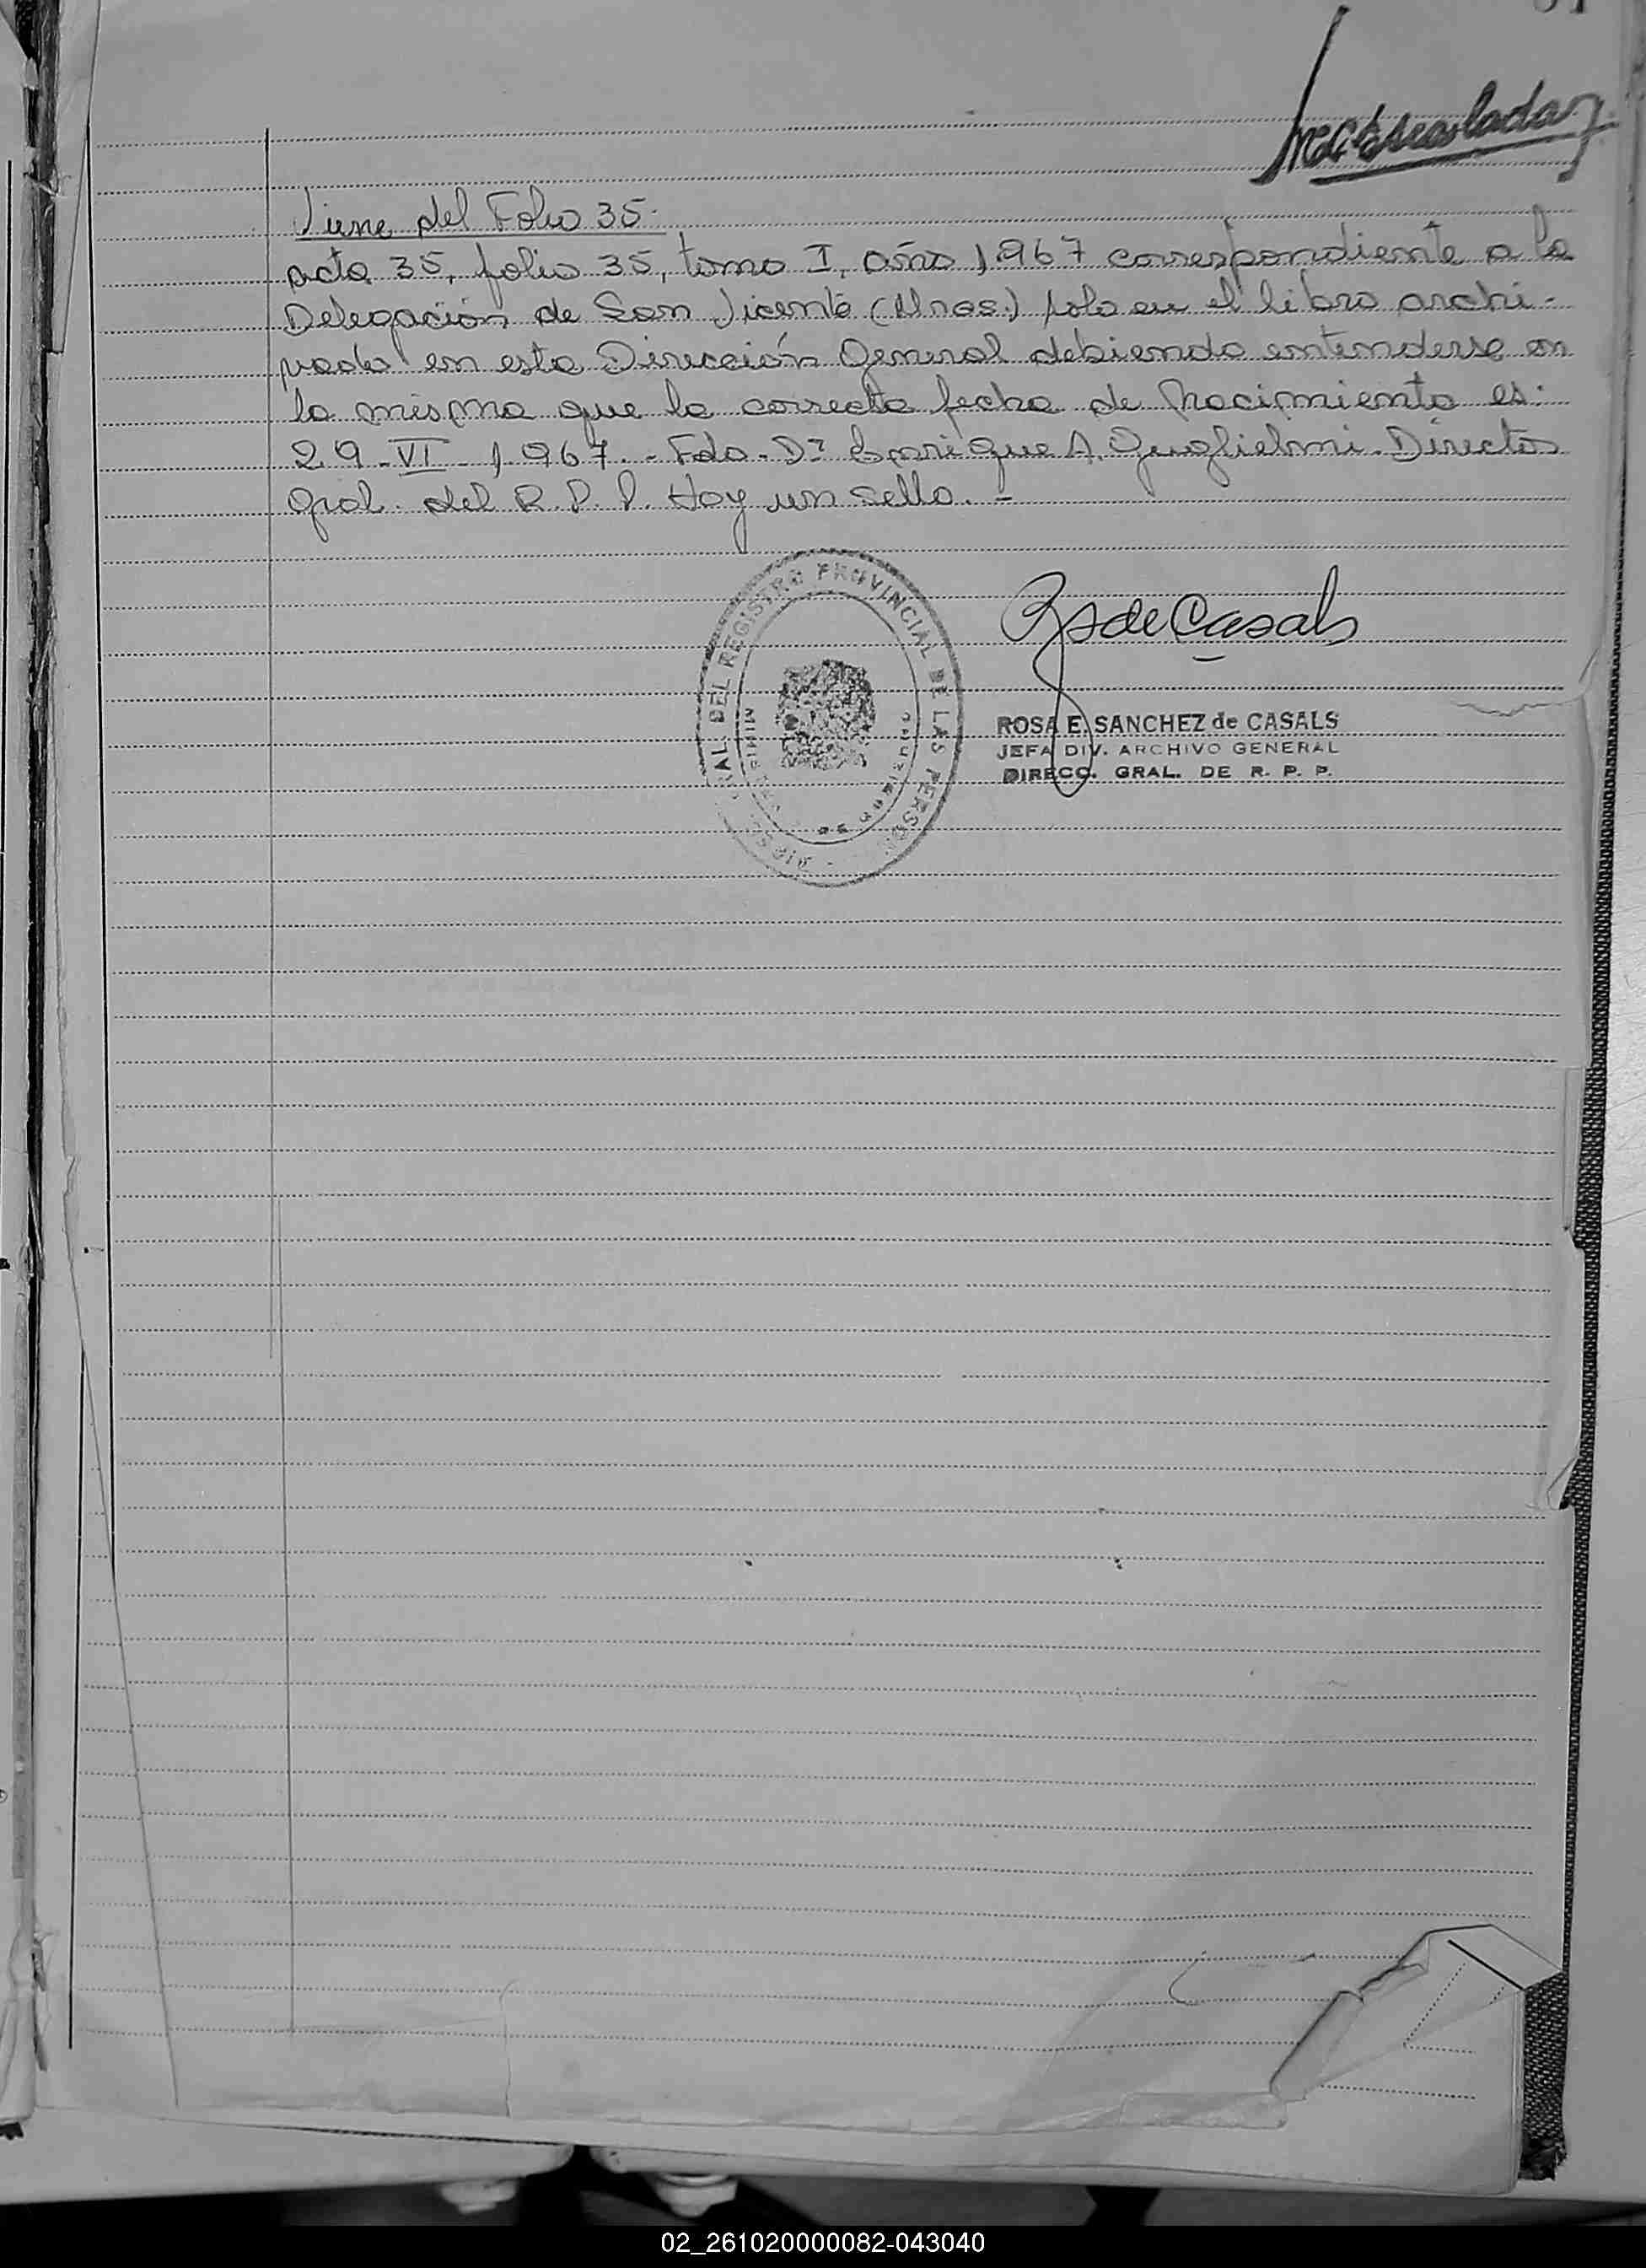 Viene del Folio 35.
acta 35, folio 35, tomo I, año 1.967 correspondiente a la
Delegación de San Vicente (Mnes.) solo en el libro archi-
vado en esta Dirección General debiendo entenderse en
la misma que la correcta fecha de nacimiento es:
29-VI-1.967.- Fdo. Dr Enrique A. Guglielmi. Director
Gral. del R.P.P. Hay un sello.-
RS de Casals
DEL REGISTRO PROVINCIAL DE LAS PERSONAS
ROSA E. SANCHEZ de CASALS
JEFA DIV. ARCHIVO GENERAL
DIRECC. GRAL. DE R. P. P.
02_261020000082-043040